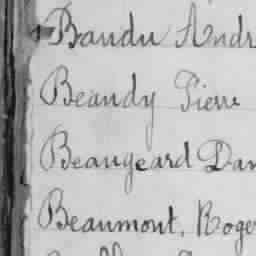 Baudu Andr
Beaudy Pierre
Beaugeard Dan
Beaumont, Roge